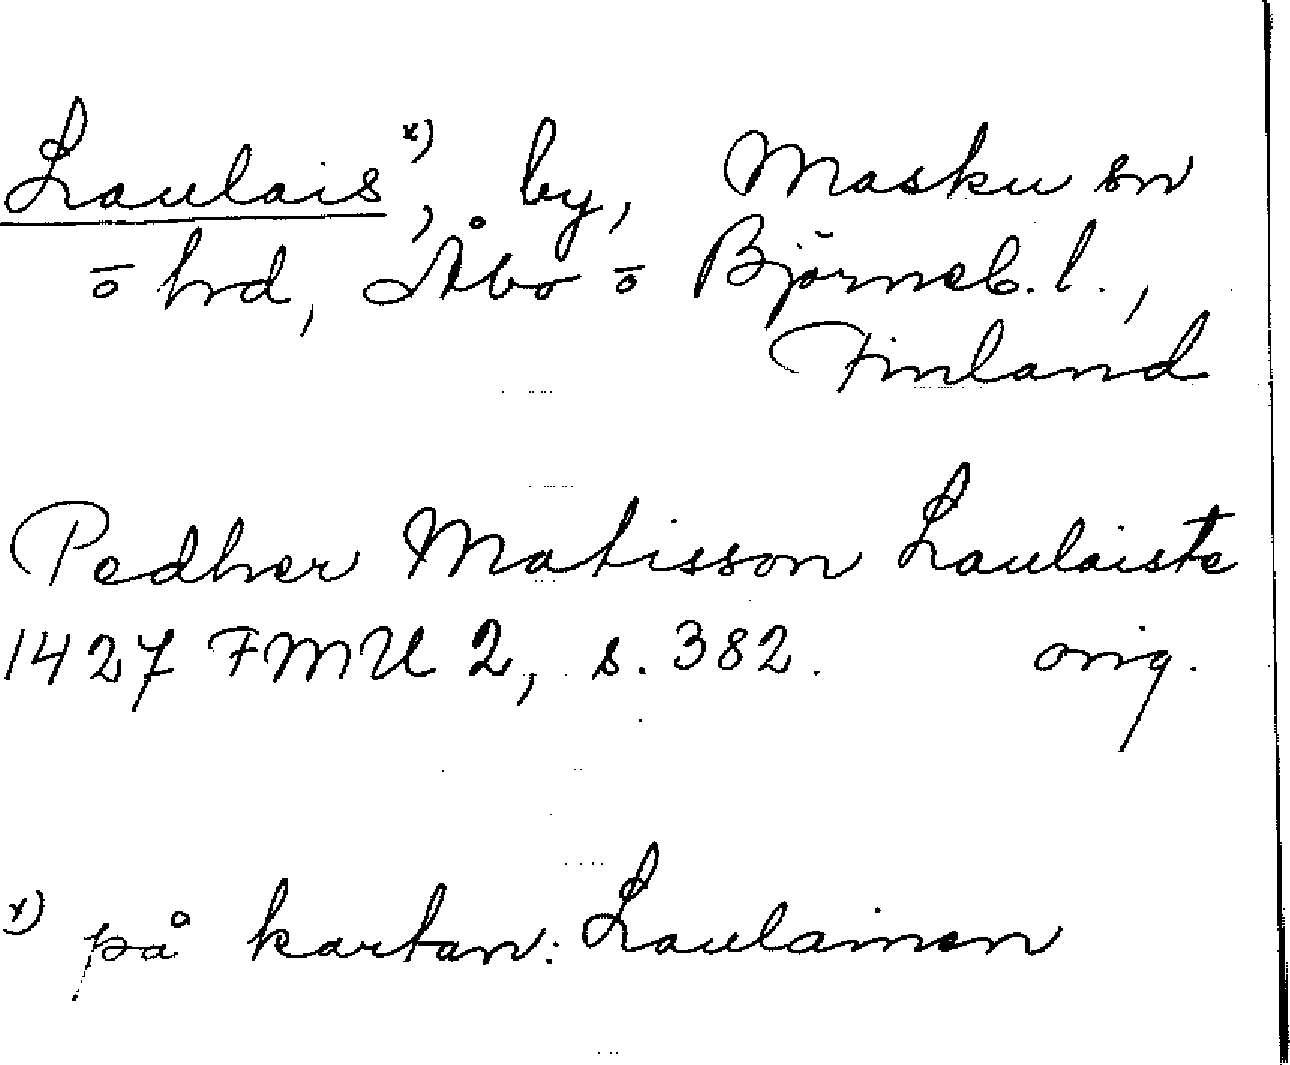 Laulais x), by, Masku sn
o hrd, Åbo o Björneb. l.,
Finland
Pedher Matisson Laulaiste
1427 FMU 2, s. 382. orig.
x) på kartan: Laulainen